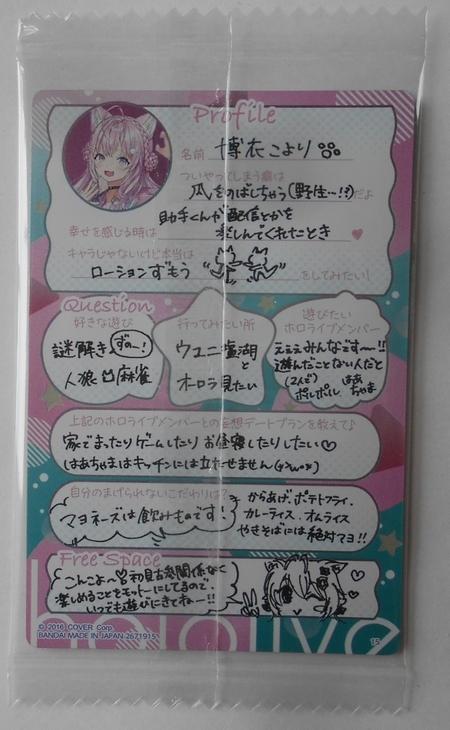 Profile
名前 博衣こより
ついやってしまう癖は
爪をのばしちゃう(野生…!?)だよ
助手くんが配信とかを
幸せを感じる時は 楽しんでくれたとき ♥
キャラじゃないけど本当は
ローションずもう をしてみたい!
Question
好きな遊び
謎解き ずの〜!
人狼 麻雀
行ってみたい所
ウユニ塩湖
と
オーロラ見たい
遊びたい
ホロライブメンバー
えぇぇみんなです〜!!
遊んだことない人だと
(2人だと)
ポルポル はあちゃま
上記のホロライブメンバーとの妄想デートプランを教えて♪
家でまったりゲームしたり お昼寝したりしたい♡
はあちゃまはキッチンには立たせません
自分のまげられないこだわりは?
マヨネーズは飲みものです!
からあげ、ポテトフライ、
カレーライス、オムライス
やきそばには絶対マヨ!!
Free Space
こんこよ〜 初見古参関係なく
楽しめることをモットーにしてるので
いつでも遊びにきてねー!!
hololive
© 2016 COVER Corp.
BANDAI MADE IN JAPAN 2671915
15